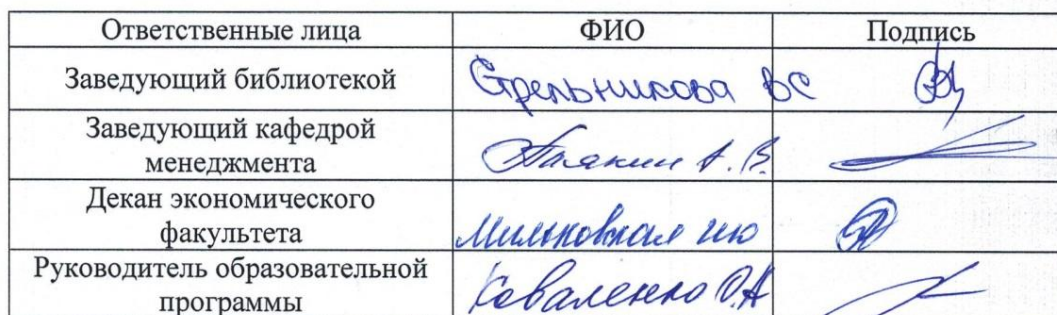 Ответственные лица ФИО Подпись
Заведующий библиотекой Стрельникова ВС
Заведующий кафедрой
менеджмента А. В.
Декан экономического
факультета
Руководитель образовательной
программы Коваленко О.А